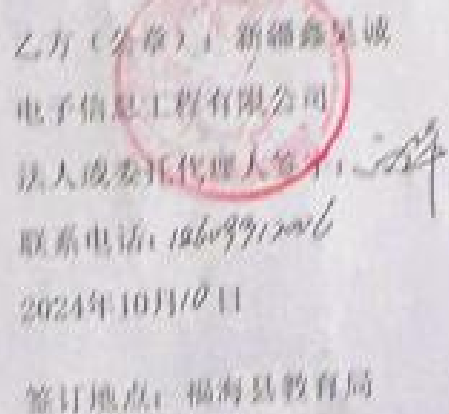 乙方（公章）：新疆鑫昊诚
电子信息工程有限公司
法人或委托代理人签字：
联系电话：
2024年10月10日
签订地点：福海县教育局